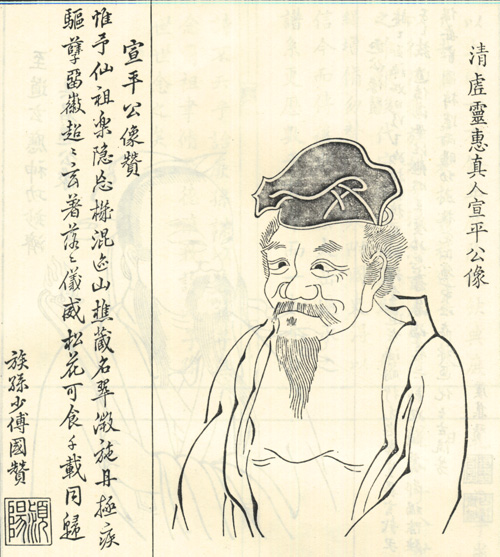 清虗靈惠真人宣平公像
宣平公像贊
惟予仙祖樂隐忘機混迹山樵藏名翠微施丹極疾
驅孽留徽超〻玄著落〻儀威松花可食千載同歸
族孫少傅國贊
潁陽